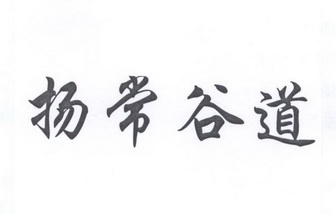 扬常谷道